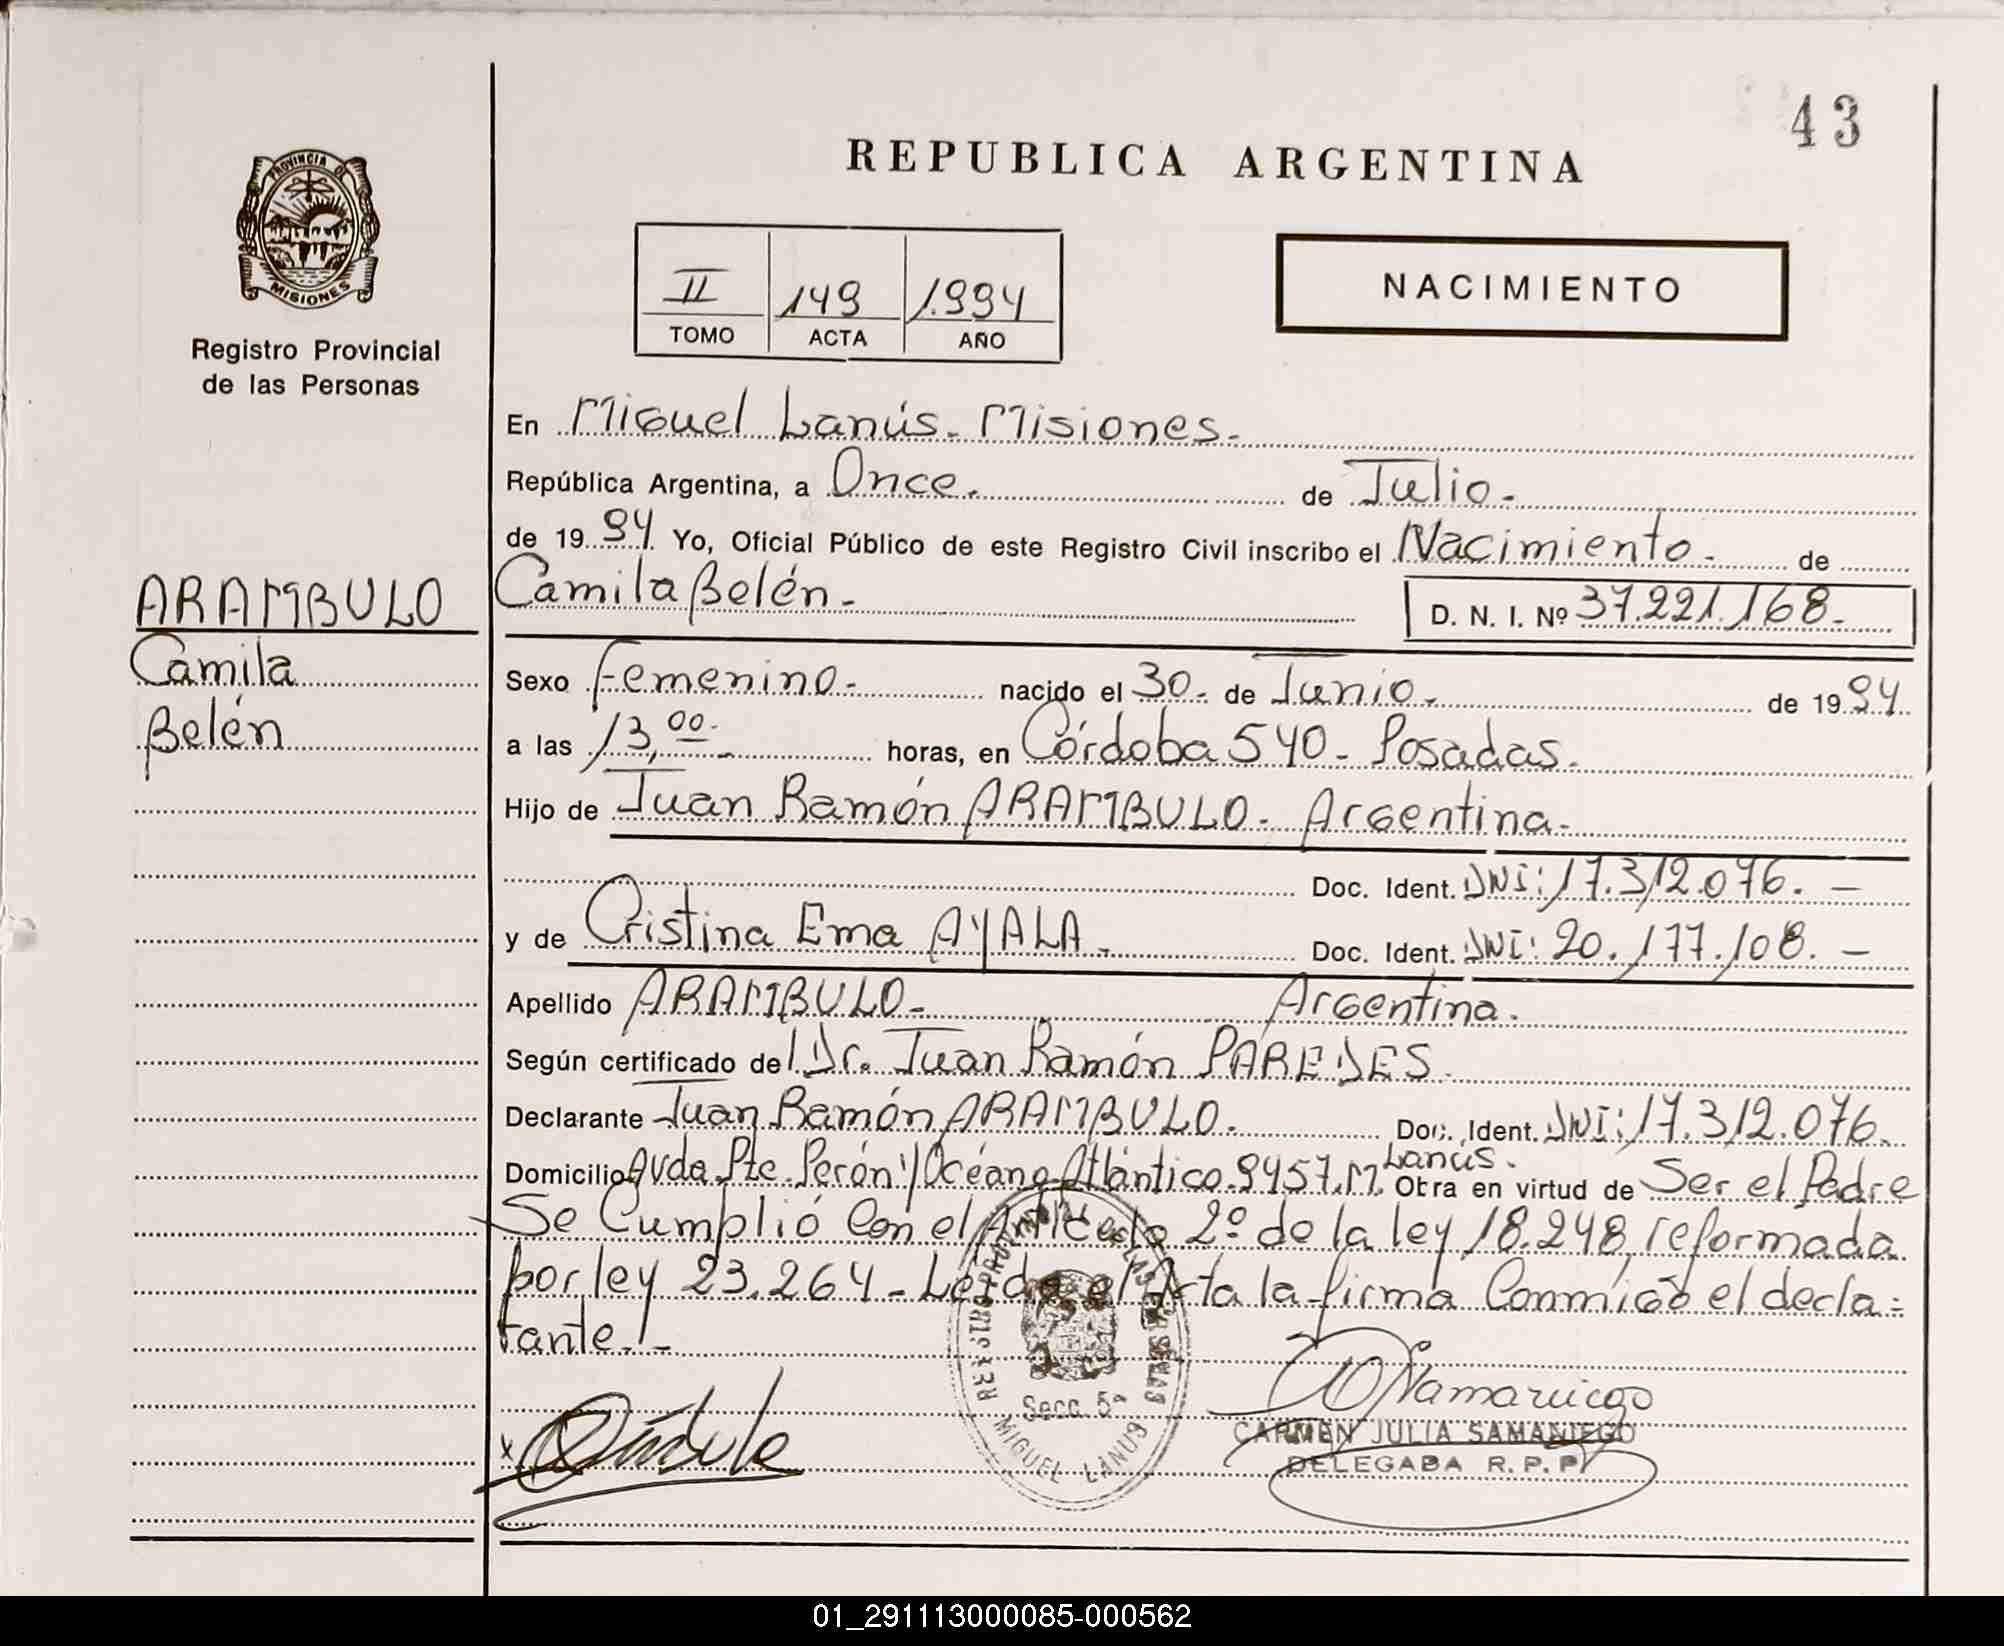 43
REPUBLICA ARGENTINA
PROVINCIA DE
MISIONES
Registro Provincial
de las Personas
II 149 1.994
TOMO ACTA AÑO
NACIMIENTO
En Miguel Lanús. Misiones.
República Argentina, a Once. de Julio.
de 1994 Yo, Oficial Público de este Registro Civil inscribo el Nacimiento. de
ARAMBULO
Camila
Belén
Camila Belén. D. N. I. Nº 37.221.168.
Sexo Femenino. nacido el 30. de Junio. de 1994.
a las 13,00. horas, en Córdoba 540. Posadas.
Hijo de Juan Ramón ARAMBULO. Argentina.
Doc. Ident. DNI: 17.312.076. —
y de Cristina Ema AYALA. Doc. Ident. DNI: 20.177.108. —
Apellido ARAMBULO. Argentina.
Según certificado del Dr. Juan Ramón PAREDES.
Declarante Juan Ramón ARAMBULO. Doc. Ident. DNI: 17.312.076.
Domicilio Avda. Pte. Perón y Océano Atlántico. 9457. M. Lanús. Otra en virtud de Ser el Padre
Se Cumplió con el Artículo 2º de la ley 18.248, reformada
por ley 23.264 - Leída el Acta la firma Conmigo el decla-
rante. -
Secc. 5ª
MIGUEL LANUS
CARMEN JULIA SAMANIEGO
DELEGADA R. P. P.
01_291113000085-000562